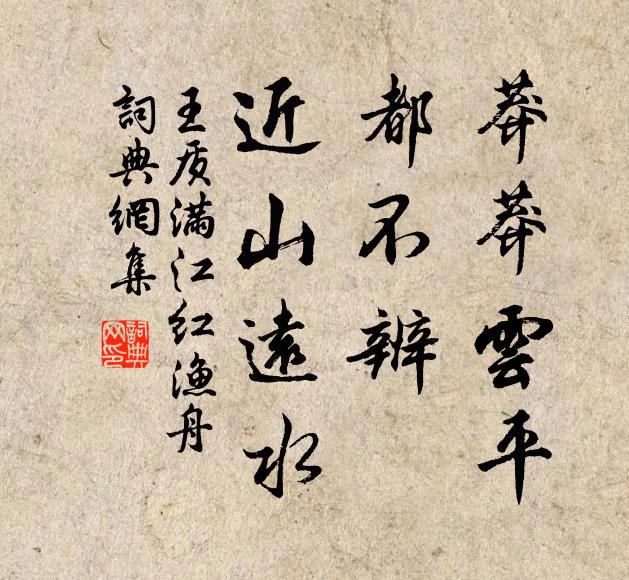 莽莽雲平
都不辨
近山遠水
王质满江红渔舟
詞典網集
詞典网印